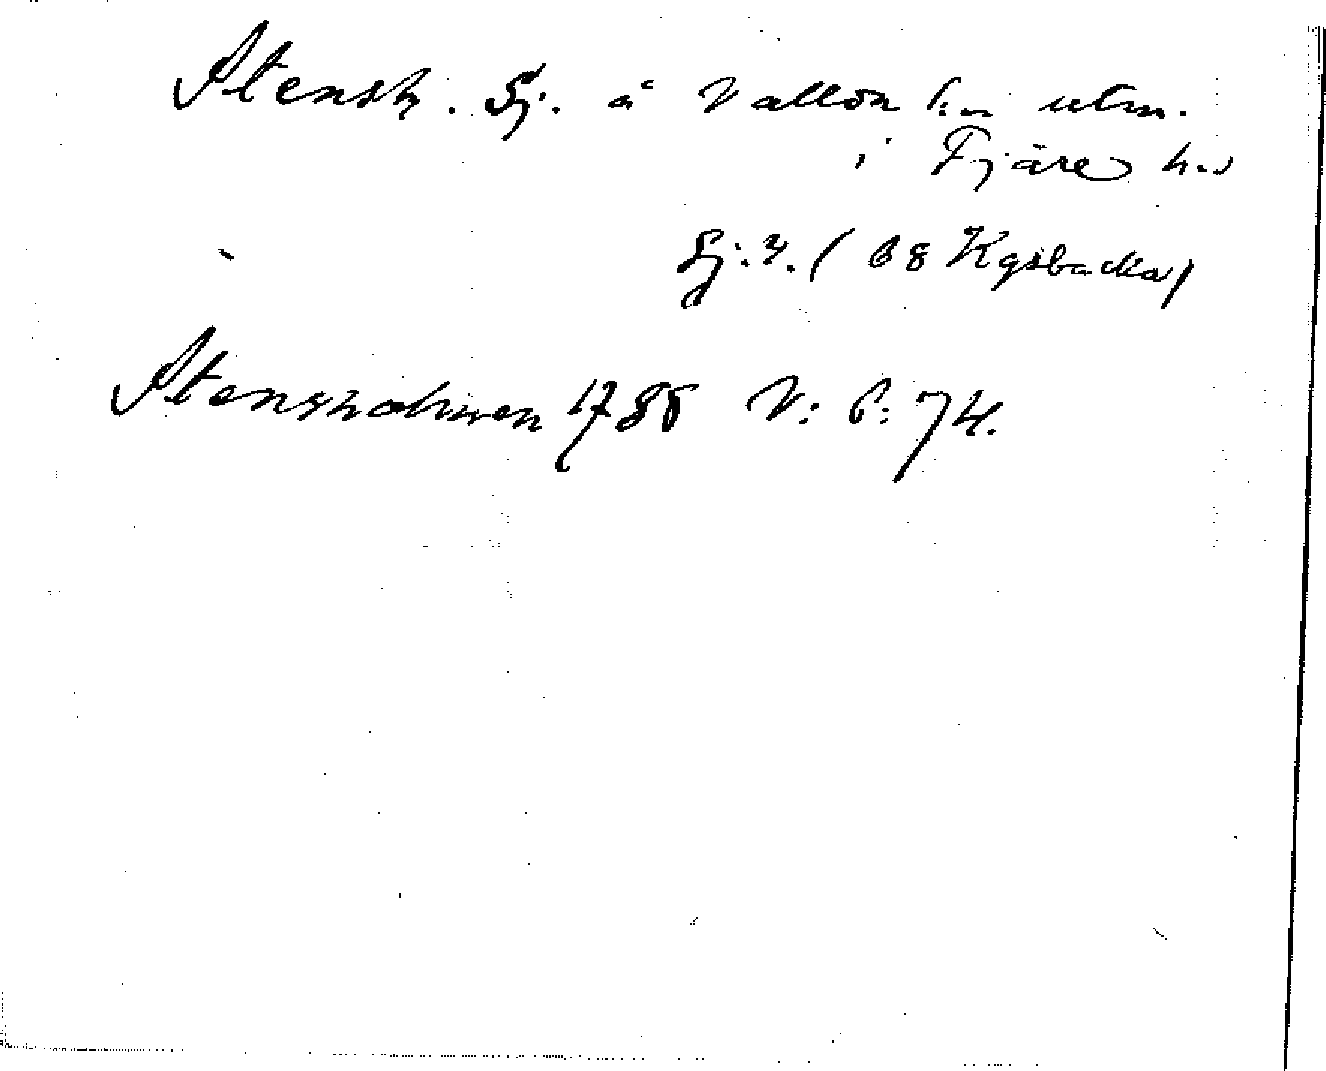 Stensh. Gj. å Vallön k:n utm.
i Fjäre h.d
Gj. 4. ( 68 Kgsbacka)
Stensholmen 1788 V: 6: 74.